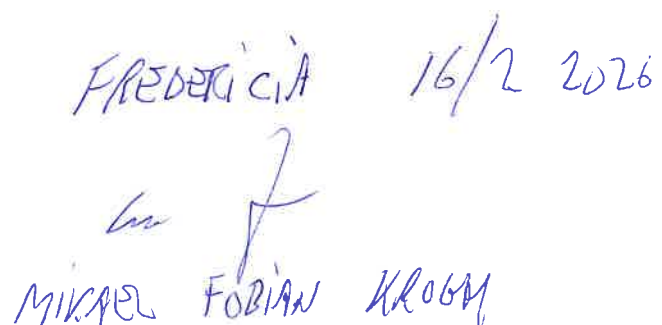 FREDERICIA 16/2 2026
MIKAEL FOBIAN KROGH